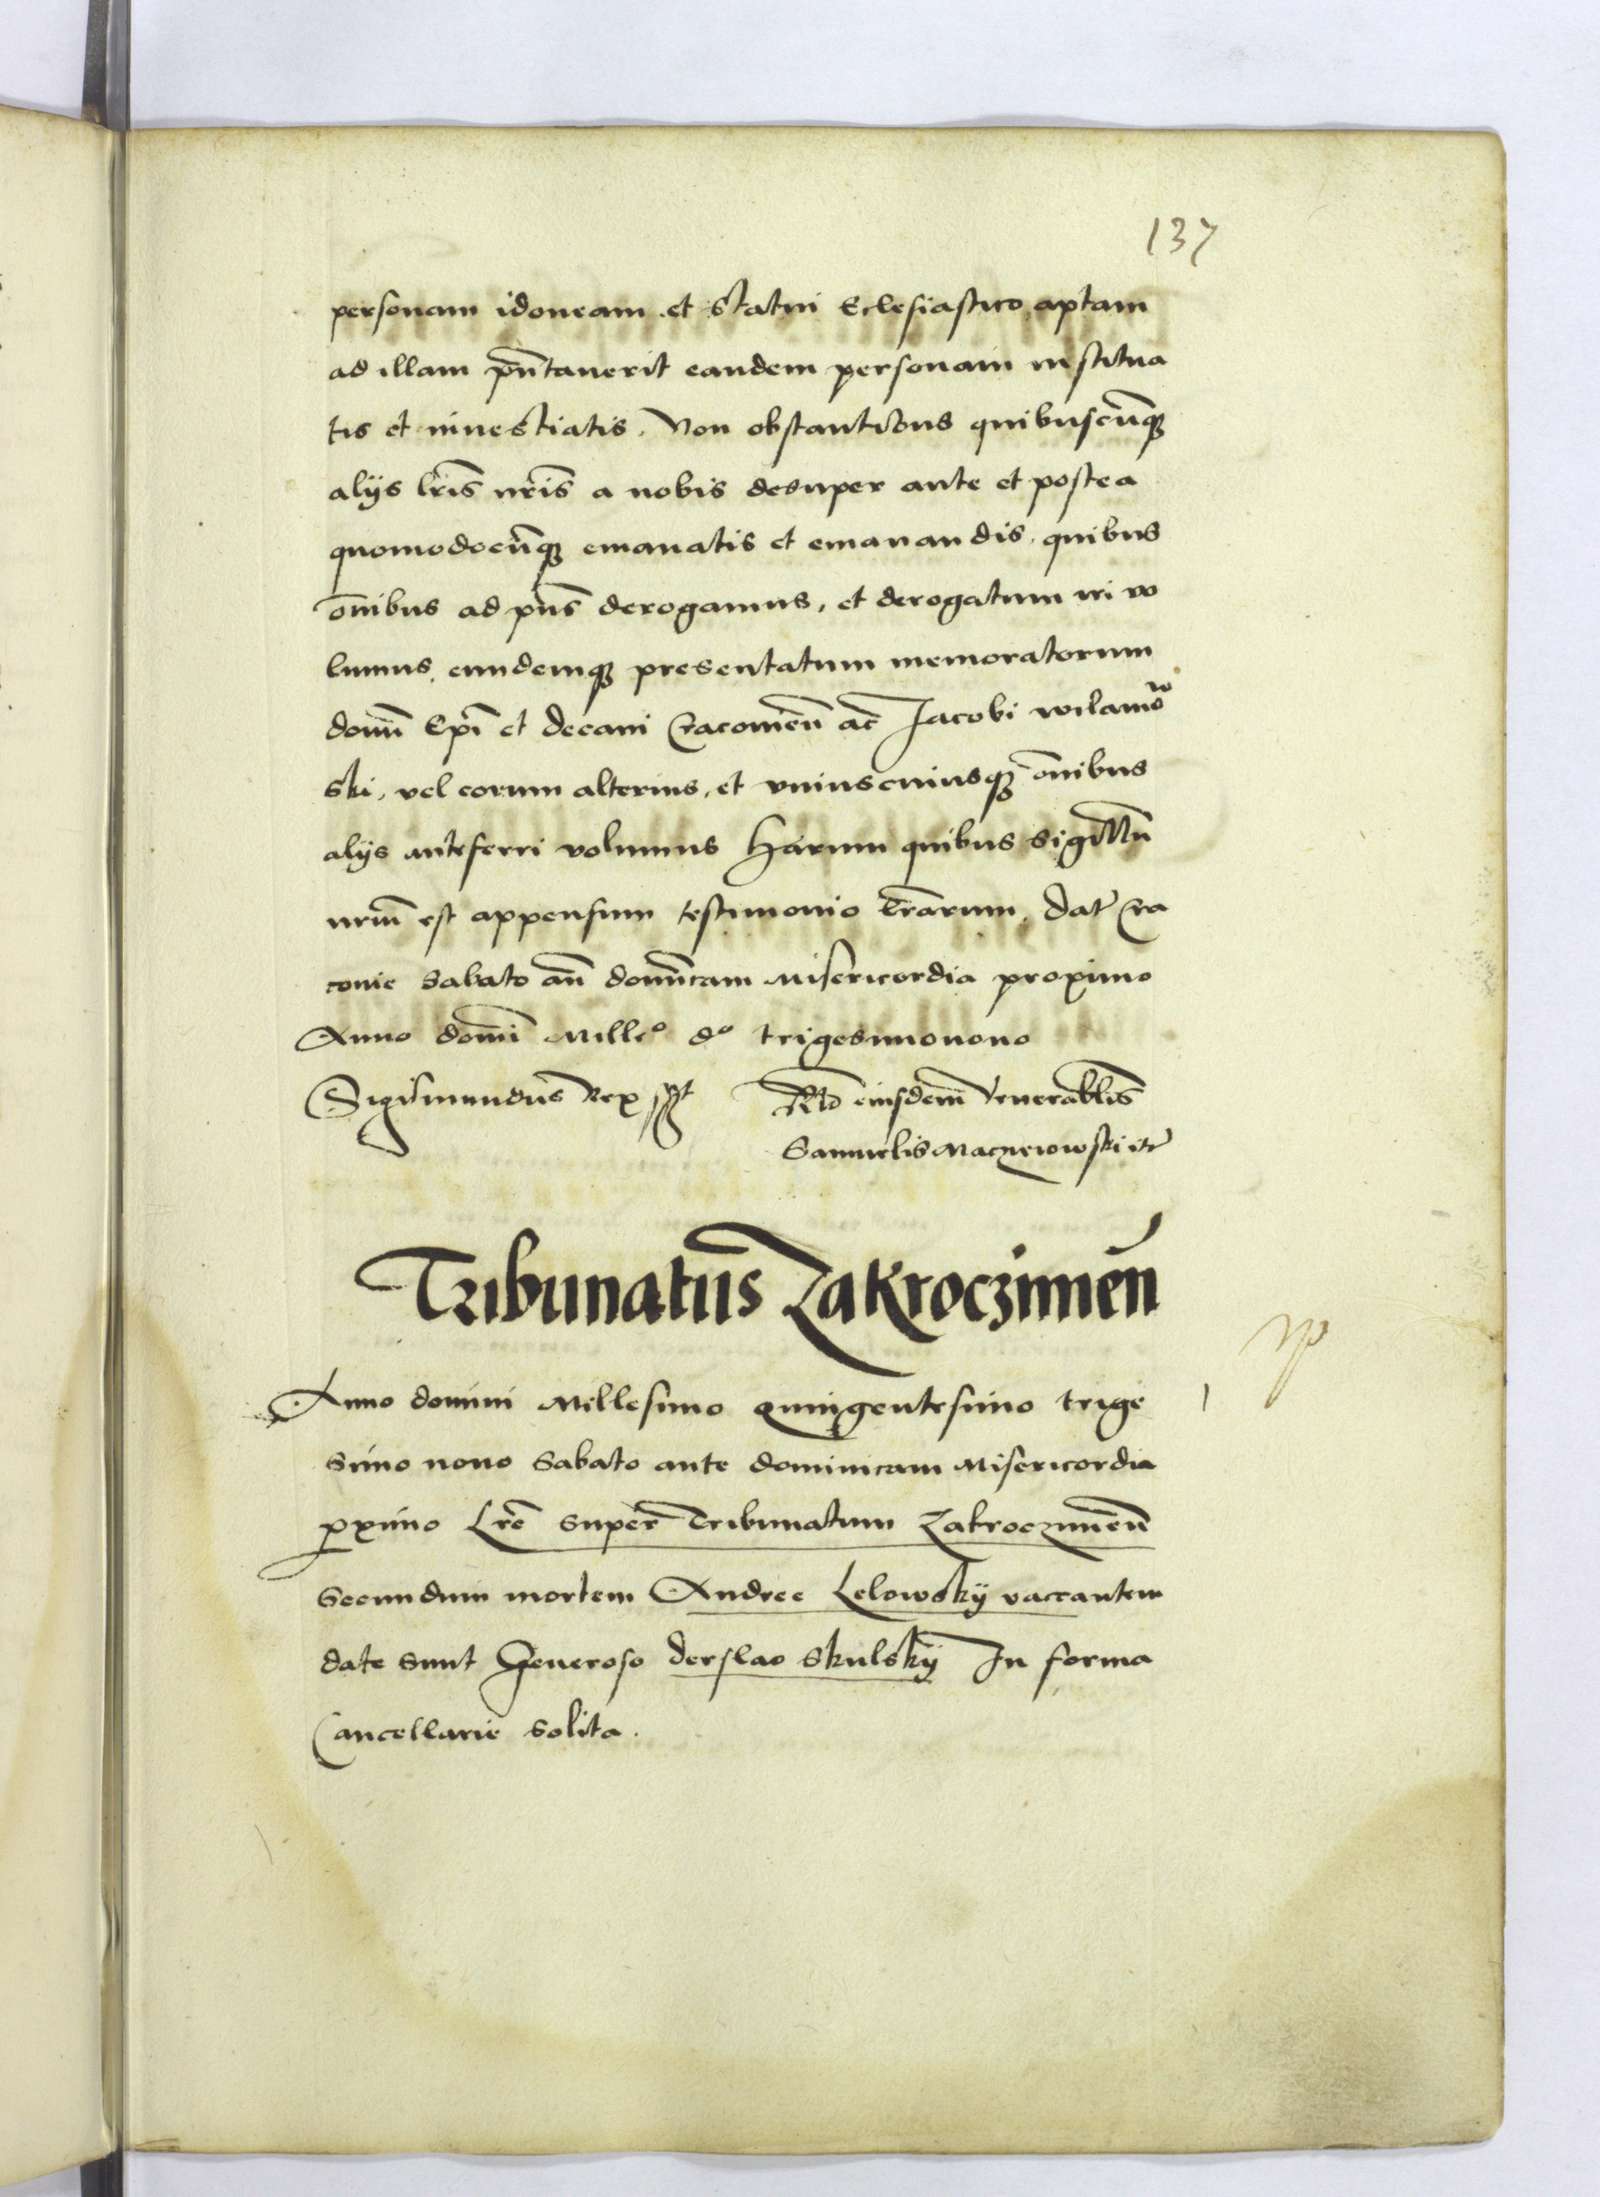 137
personam idoneam et statui Eclesiastico aptam
ad illam pñtauerit eandem personam institua
tis et inuestiatis. Non obstantibus quibuscũq
alÿs lrĩs nrĩs a nobis desuper ante et postea
quomodocũq emanatis et emanandis. quibus
oñibus ad pñs derogamus, et derogatum iri vo
lumus, eundemq presentatum memoratorum
domũ Epĩ et decani Cracouień ac Jacobi wilamow
ski, vel eorum alterius, et vniuscuiusq oñibus
alÿs anteferri volumus Harum quibus sigillũ
nrũm est appensum testimonio lrãrum. Dat Cra
couie Sabato añ dominicam Misericordia proximo
Anno domĩ Mill°  d° trigesimonono
Sigismundus Rex sst Rlo eiusdem Venerablis
Samuelis Macyeiowski etc
Tribunatus Zakroczimeñ
Anno domini Millesimo quingentesimo trige
simo nono Sabato ante dominicam Misericordia
pximo Lrẽ super Tribunatum Zakroczimeñ
secundum mortem Andree Lelowskÿ vaccantem
date sunt Generoso derslao Skulskÿ In forma
Cancellarie solita.